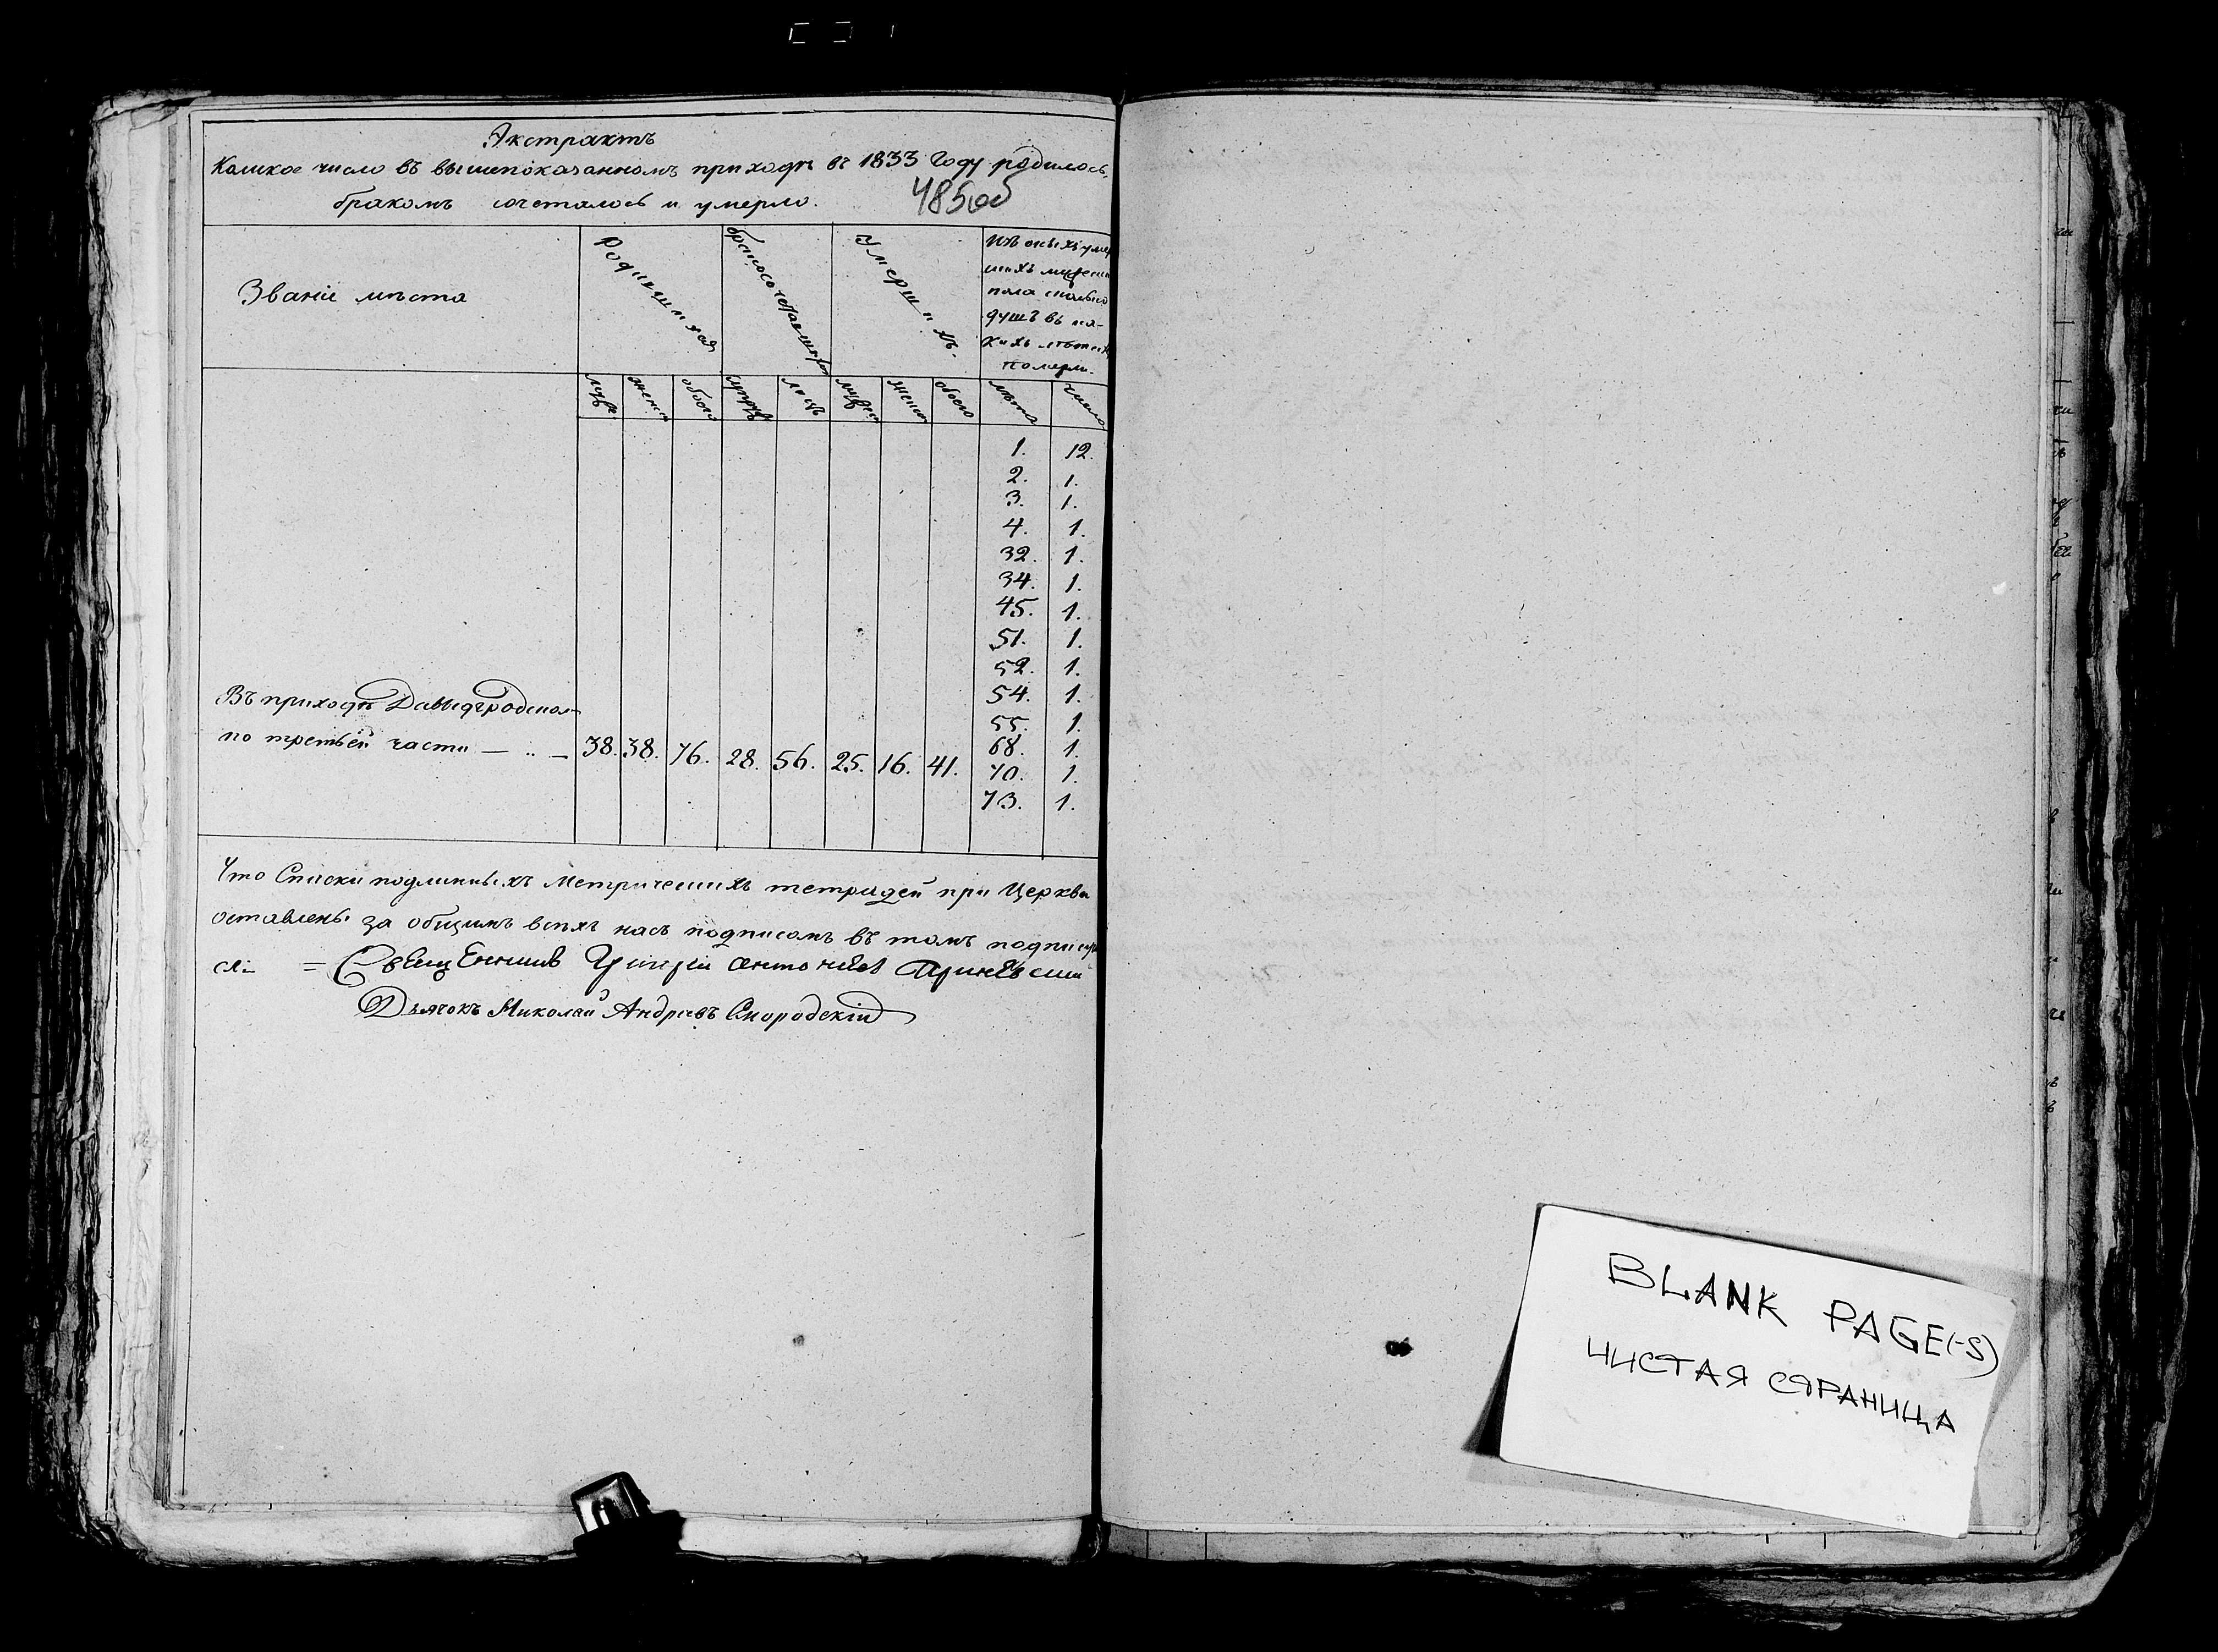 Экстрактъ
Коликое число въ вышепоказанномъ приходѣ въ 1833 Году родилось,
бракомъ сочеталось и умерло.
485об
Званіе мѣста
Родившихся
бракосочетавшихся
Умершихъ.
Изъ оныхъ умер
шихъ мужеска
пола сколько
душъ въ ка-
кихъ лѣтахъ
померли.
муж
женск
обоего
лицъ
муж
женск
обоего
лѣта
число
1. 12.
2. 1.
3. 1.
4. 1.
32. 1.
34. 1.
45. 1.
51. 1.
52. 1.
54. 1.
55. 1.
68. 1.
70. 1.
73. 1.
Въ приходѣ Давыдгродском
по третьей части — .. — 38. 38. 76. 28. 56. 25. 16. 41.
Что Списки подлинныхъ Метрическихъ тетрадей при Церкви
оставлены за общимъ всѣхъ насъ подписомъ въ томъ подписуем
ся:
Дьячокъ Николай Андреевъ Смородскій
BLANK PAGE(-S)
ЧИСТАЯ СТРАНИЦА